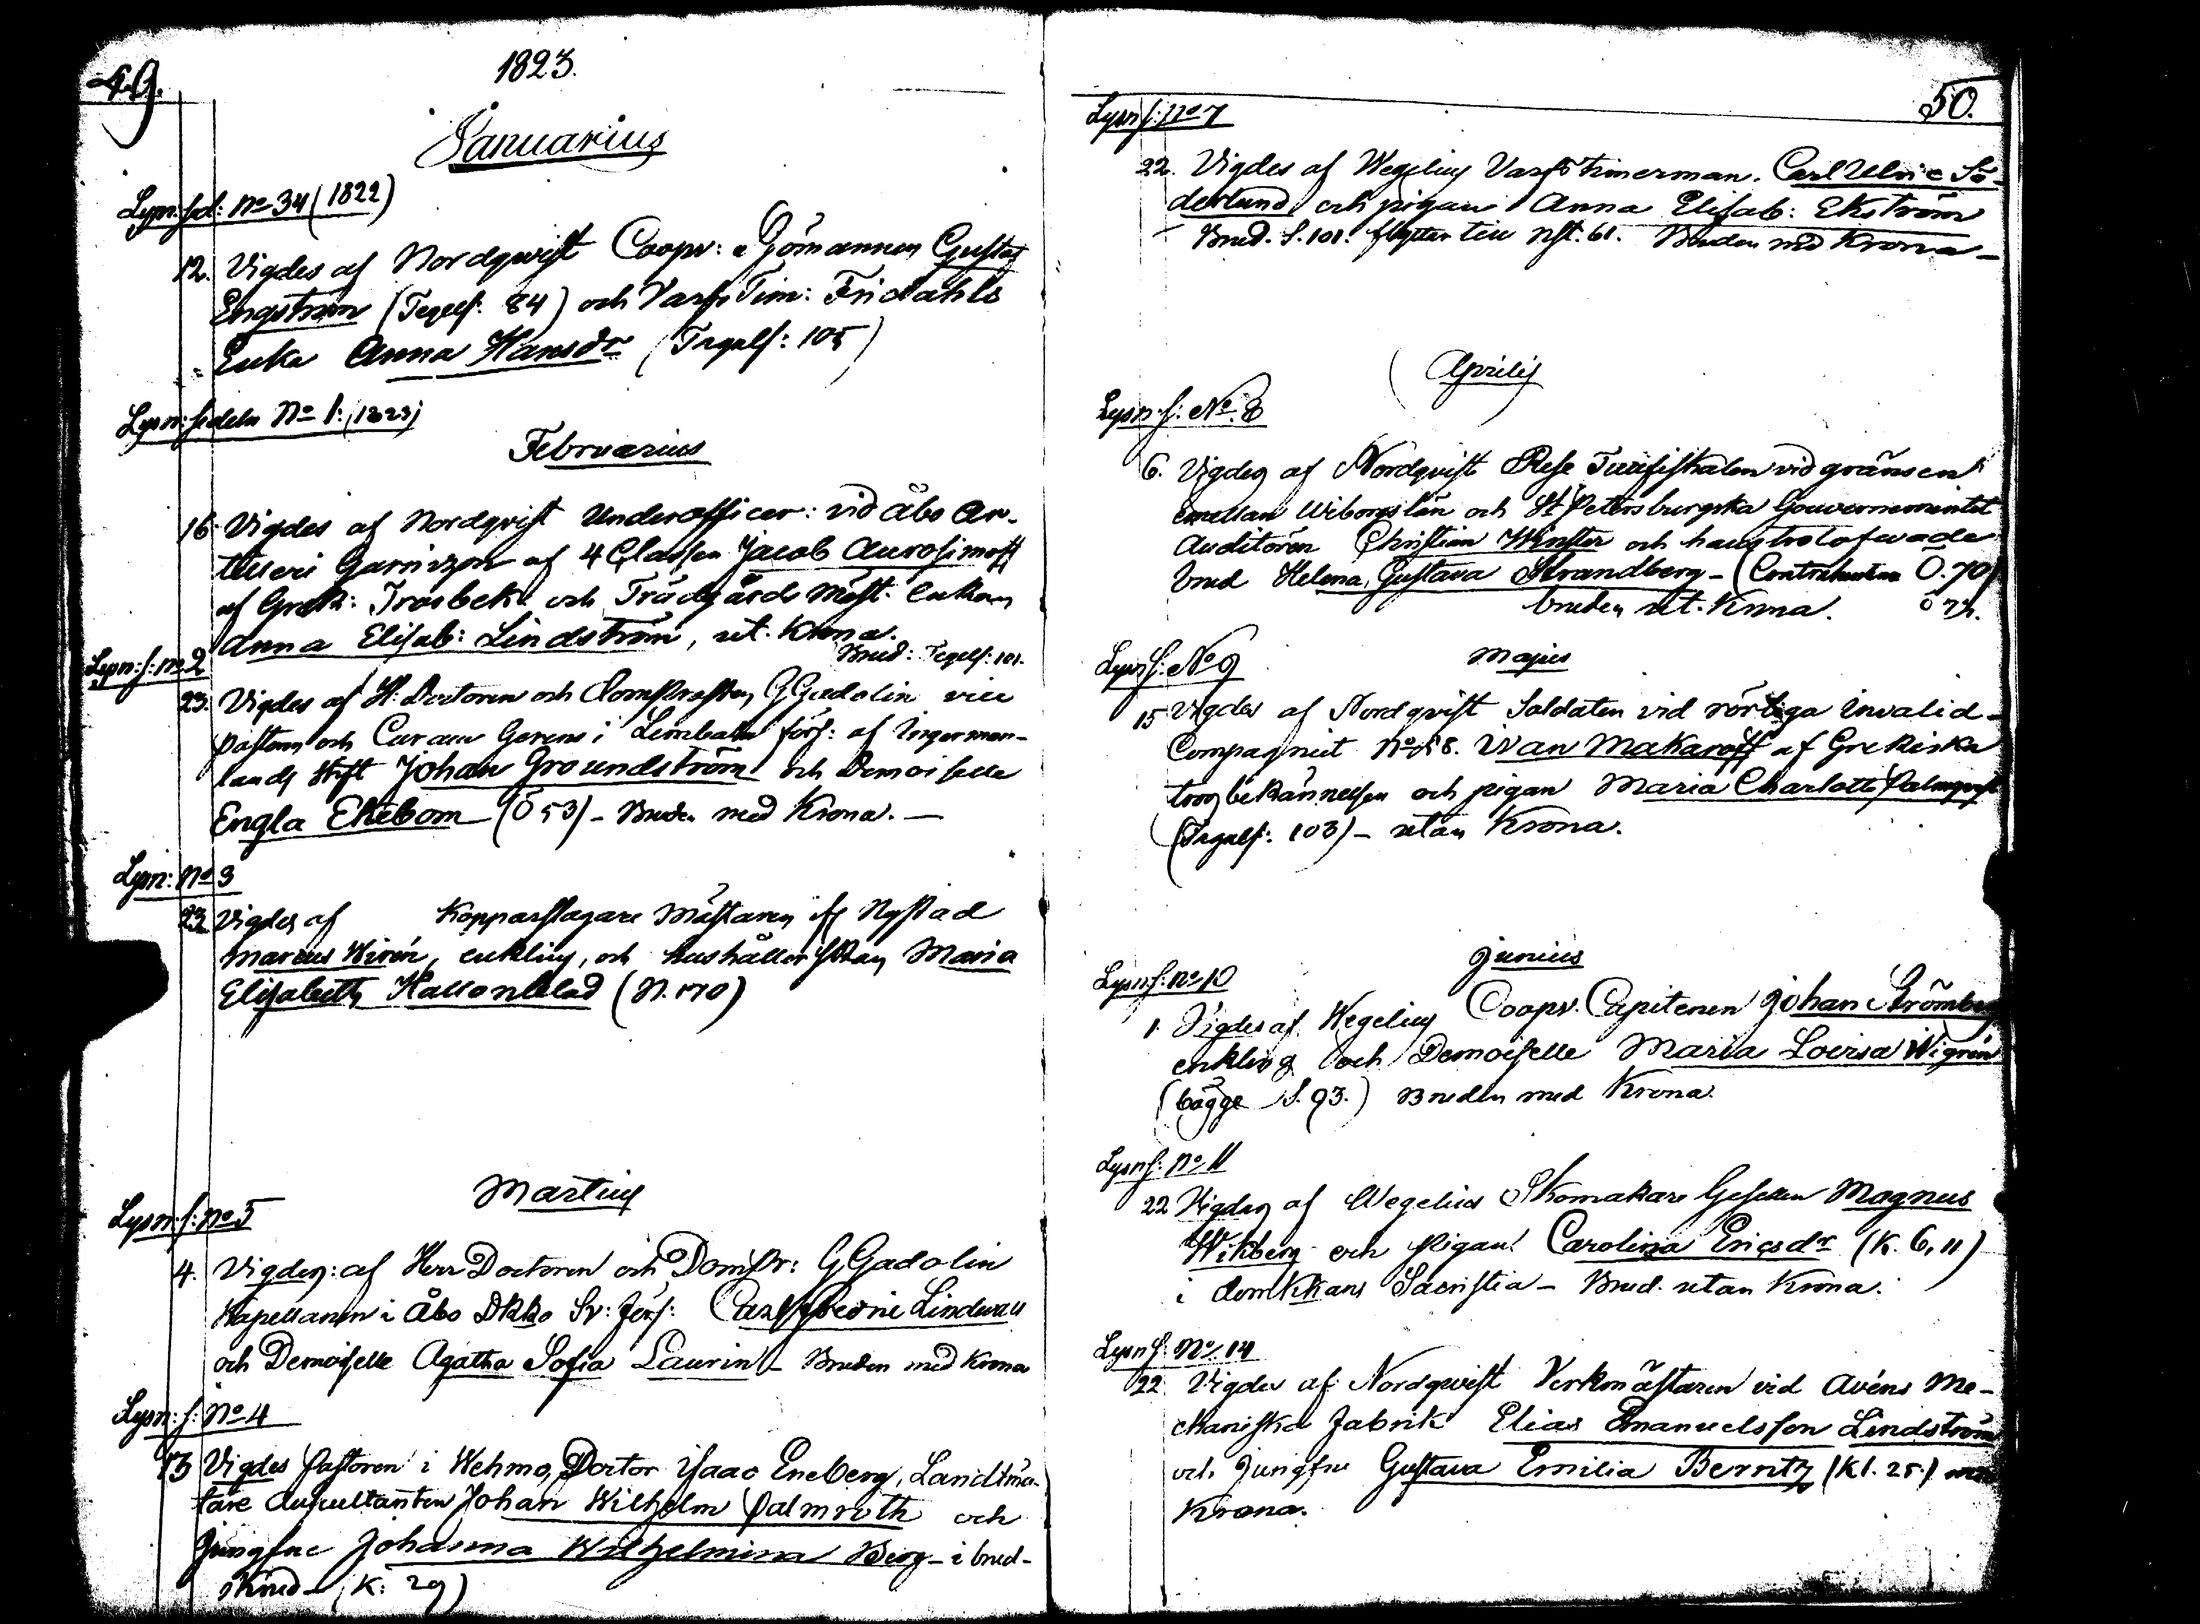 49.
1823.
Januarius
Lysn: sed: No 34 (1822)
12. Vigdes af Nordqvist Coopv: Sjömannen Gustaf
Engström (Tegels: 84) och Varfs Tim: Fridahls
Enka Anna Hansdr (Tegels: 105)
Lysn: sedeln No 1: (1823)
Februarius
16. Vigdes af Nordqvist Underofficer: vid Åbo Ar-
tilleri Garnizon af 4 Classen Jacob Aurosimoff
af Grek: Trosbek: och Trädgårds Mäst. Enkan
Anna Elisab: Lindström, ut. Krona.
Brud: Tegels: 101.
Lysn: s: no 2
23. Vigdes af H. Doctoren och Domprosten G Gadolin vice
pastorn och Curam Gerens i Lembala förs: af Ingerman-
lands Stift Johan Groundström och Demoiselle
Engla Ekebom (Ö 53) - Bruden med Krona. -
Lysn: No 3
23 Vigdes af Kopparslagare Mästaren Nystad
Marcus Wirén, enkling, och hushållerskan Maria
Elisabeth Hallonblad (N. 170)
Martius
Lysn: s: no 5
4. Vigdes: af Herr Doctoren och Dompr: G Gadolin
Kapellanen i Åbo Dkko Sv: förs: Lindwall
och Demoiselle Agatha Sofia Laurin - Bruden med Krona
Lysn: s: No 4
13 Vigdes Pastoren i Wehmo, Doctor Isaac Eneberg, Landtmä-
tare Auscultanten Johan Wilhelm Palmroth och
Jungfru Johanna Wilhelmina Berg - i brud-
skrud - (K: 29)
50.
Lysn s: no 7
22. Vigdes af Wegelius Varfs timerman. Carl Ulric Sö-
derlund och pigan Anna Elisab: Ekström
Brud. S. 101. flyttar till nst. 61. Bruden med Krona -
Aprilis
Lysn s: No. 8
6. Vigdes af Nordqvist vid gränsen
emellan Wiborgs län och St Petersburgska Gouvernementet
Auditören Christian Winter och hans trolofwade
brud Helena Gustava Strandberg - (Contrahenterna Ö. 70)
bruden ut. Krona.
Lysn s: No 9
Majus
15 Vigdes af Nordqvist Soldaten vid rörliga Invalid-
Compagniet No 58. Iwan Makaroff af Grekiska
troosbekännelsen och pigan Maria Charlotta Palmqvist
(Tegels: 103) - utan Krona.
Junius
Lysn s: no 10
1. Vigdes af Wegelius Coopv. Capitenen Johan Strömberg
enkling och Demoiselle Maria Lovisa Wigrén
(bägge S. 93.) Bruden med Krona.
Lysn s: No 11
22 Vigdes af Wegelius Skomakare Gesellen Magnus
Wikberg och Pigan Carolina Ericsdr (K. 6, 11)
i domkkans Sacristia - Brud. utan Krona.
Lysn s: No. 14
22. Vigdes af Nordqvist Verkmästaren vid Avéns Me-
chaniska Fabrik Elias Emanuelsson Lindström
och Jungfru Gustava Emilia Berntz (Kl. 25.) med
Krona.